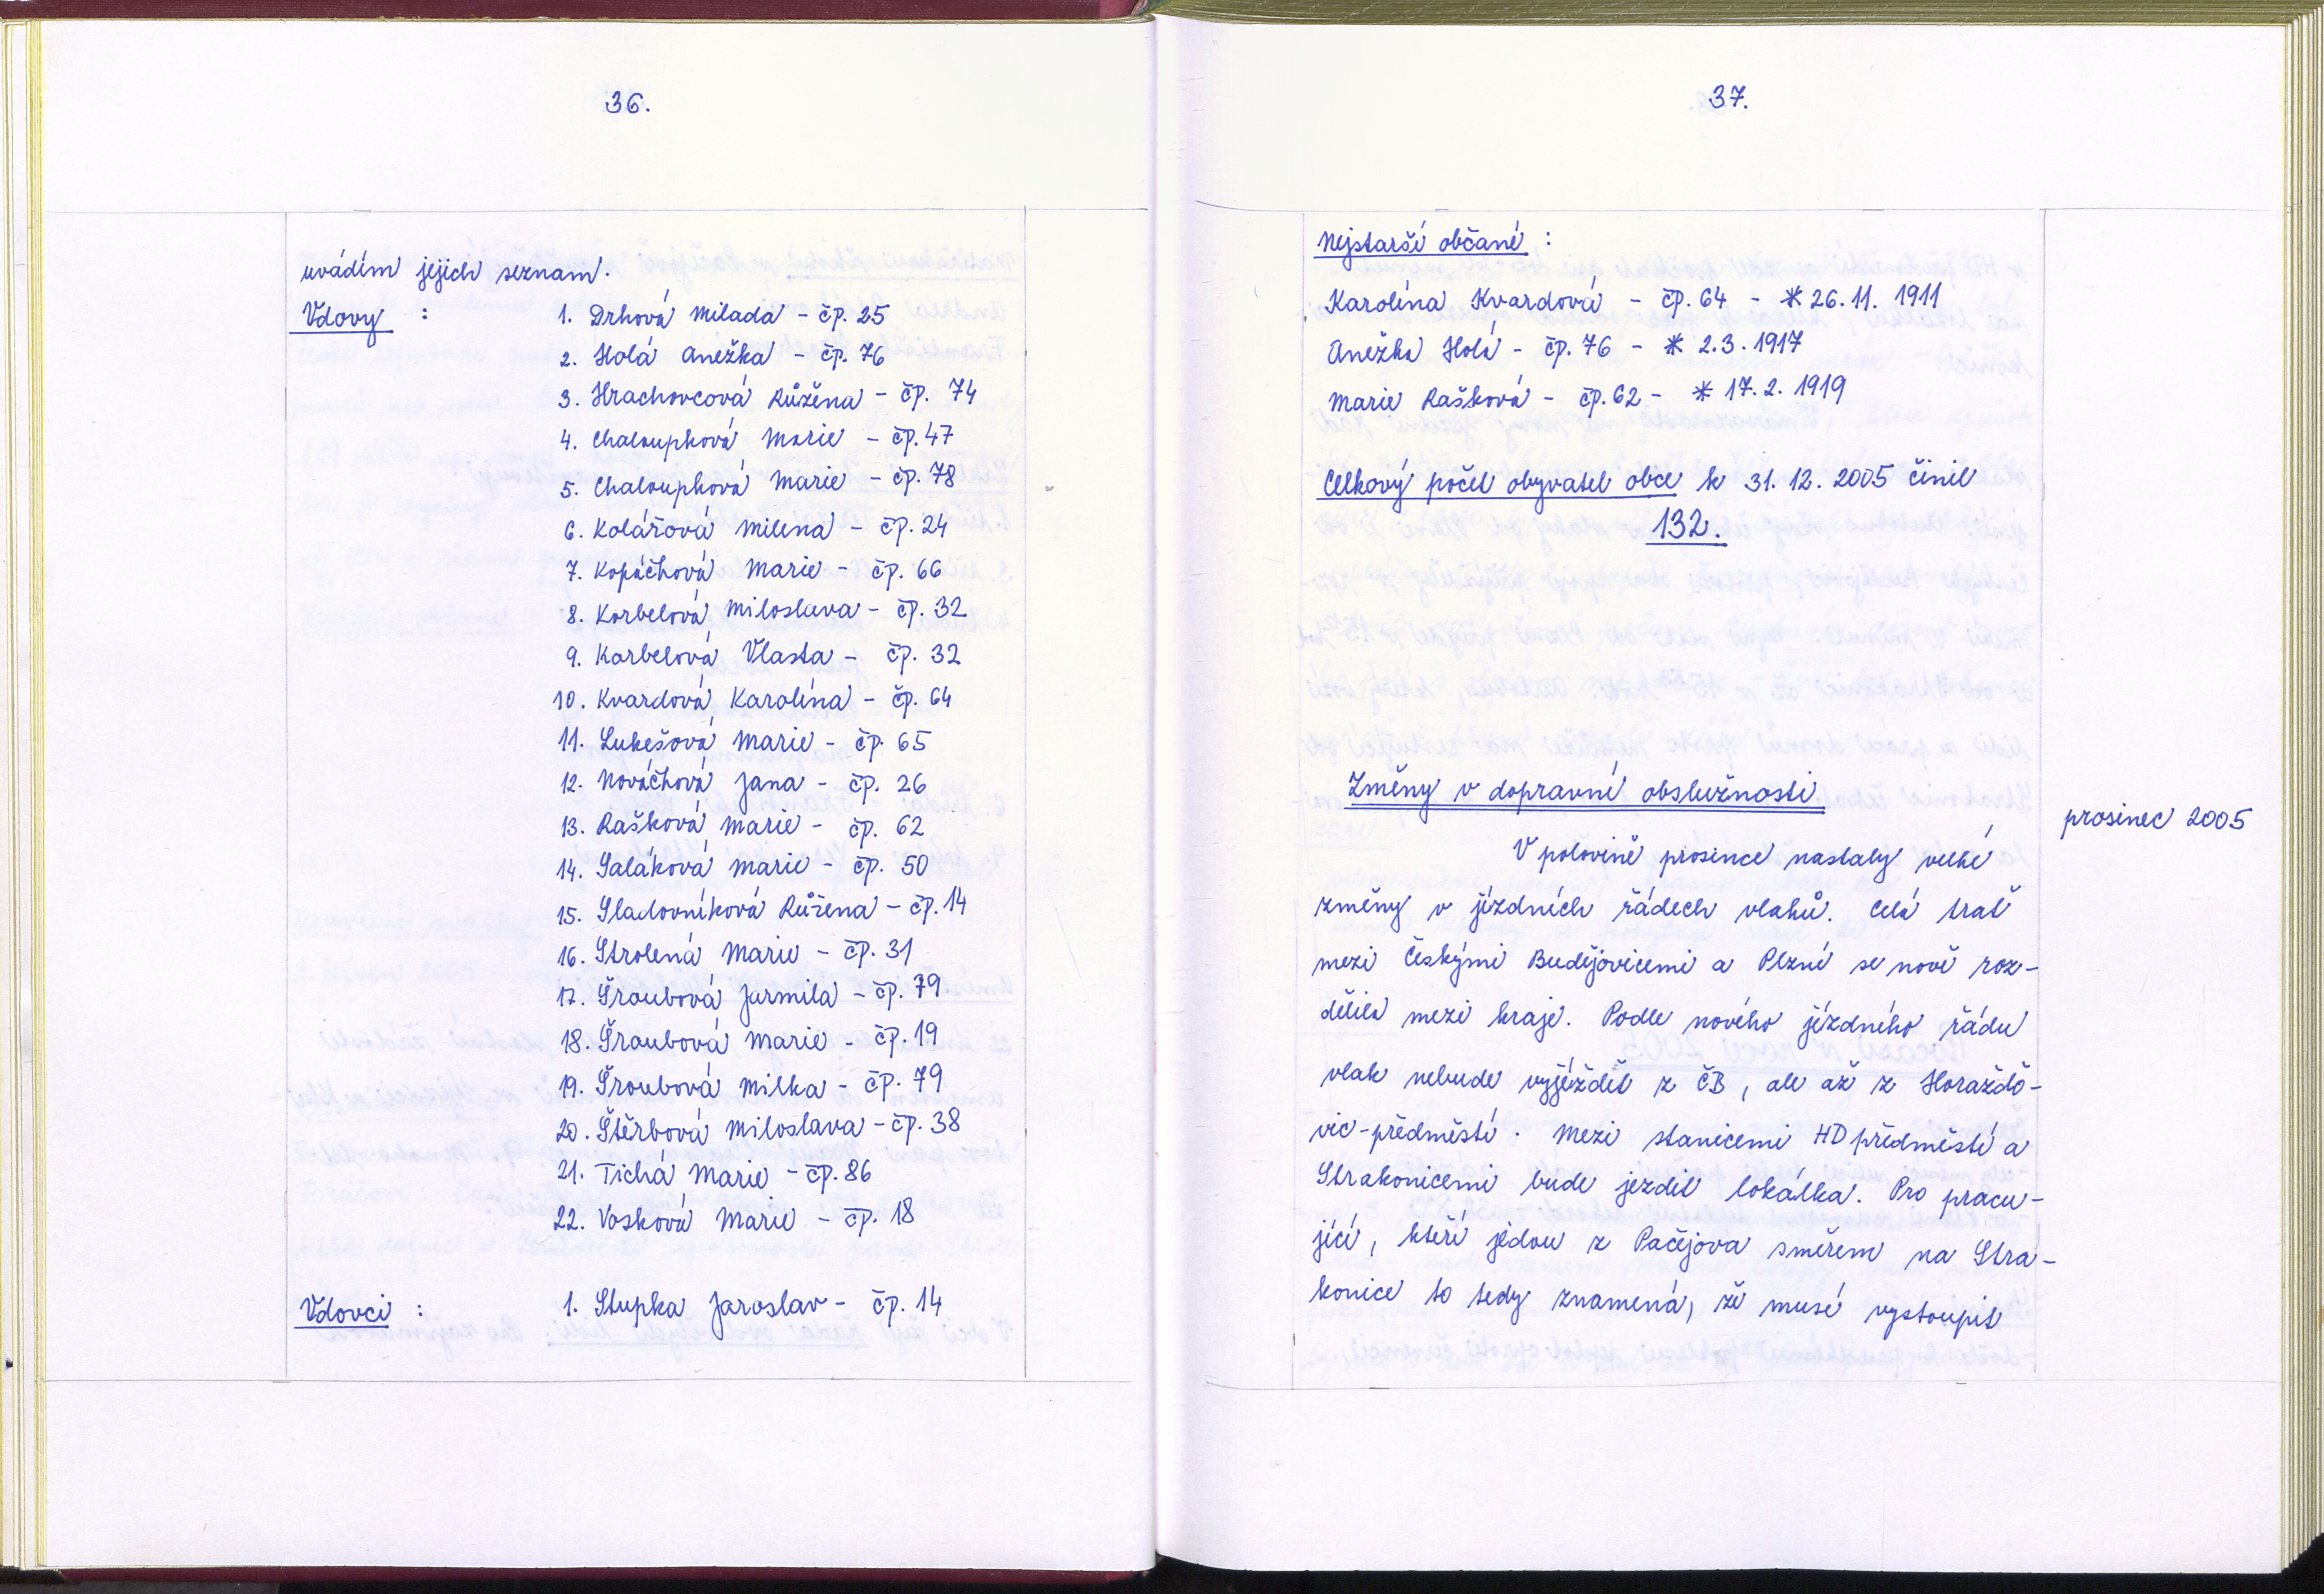 36.
uvádím jejich seznam.
Vdovy : 1. Drhová Milada - čp. 25
2. Holá Anežka - čp. 76
3. Hrachovcová Růžena - čp. 74
4. Chaloupková Marie - čp. 47
5. Chaloupková Marie - čp. 78
6. Kolářová Milena - čp. 24
7. Kopáčková Marie - čp. 66
8. Korbelová Miloslava - čp. 32
9. Korbelová Vlasta - čp. 32
10. Kvardová Karolína - čp. 64
11. Lukešová Marie - čp. 65
12. Nováčková Jana - čp. 26
13. Rašková Marie - čp. 62
14. Saláková Marie - čp. 50
15. Sladovníková Růžena - čp. 14
16. Strolená Marie - čp. 31
17. Šroubová Jarmila - čp. 79
18. Šroubová Marie - čp. 19
19. Šroubová Milka - čp. 79
20. Štěrbová Miloslava - čp. 38
21. Tichá Marie - čp. 86
22. Vosková Marie - čp. 18
Vdovci : 1. Stupka Jaroslav - čp. 14
37.
Nejstarší občané :
Karolína Kvardová - čp. 64 - * 26. 11. 1911
Anežka Holá - čp. 76 - * 2. 3. 1917
Marie Rašková - čp. 62 - * 17. 2. 1919
Celkový počet obyvatel obce k 31. 12. 2005 činil
132.
Změny v dopravní obslužnosti
prosinec 2005
V polovině prosince nastaly velké
změny v jízdních řádech vlaků. Celá trať
mezi Českými Budějovicemi a Plzní se nově roz-
dělila mezi kraje. Podle nového jízdního řádu
vlak nebude vyjíždět z ČB, ale až z Horažďo-
vic-předměstí. Mezi stanicemi HD předměstí a
Strakonicemi bude jezdit lokálka. Pro pracu-
jící, kteří jedou z Pačejova směrem na Stra-
konice to tedy znamená, že musí vystoupit